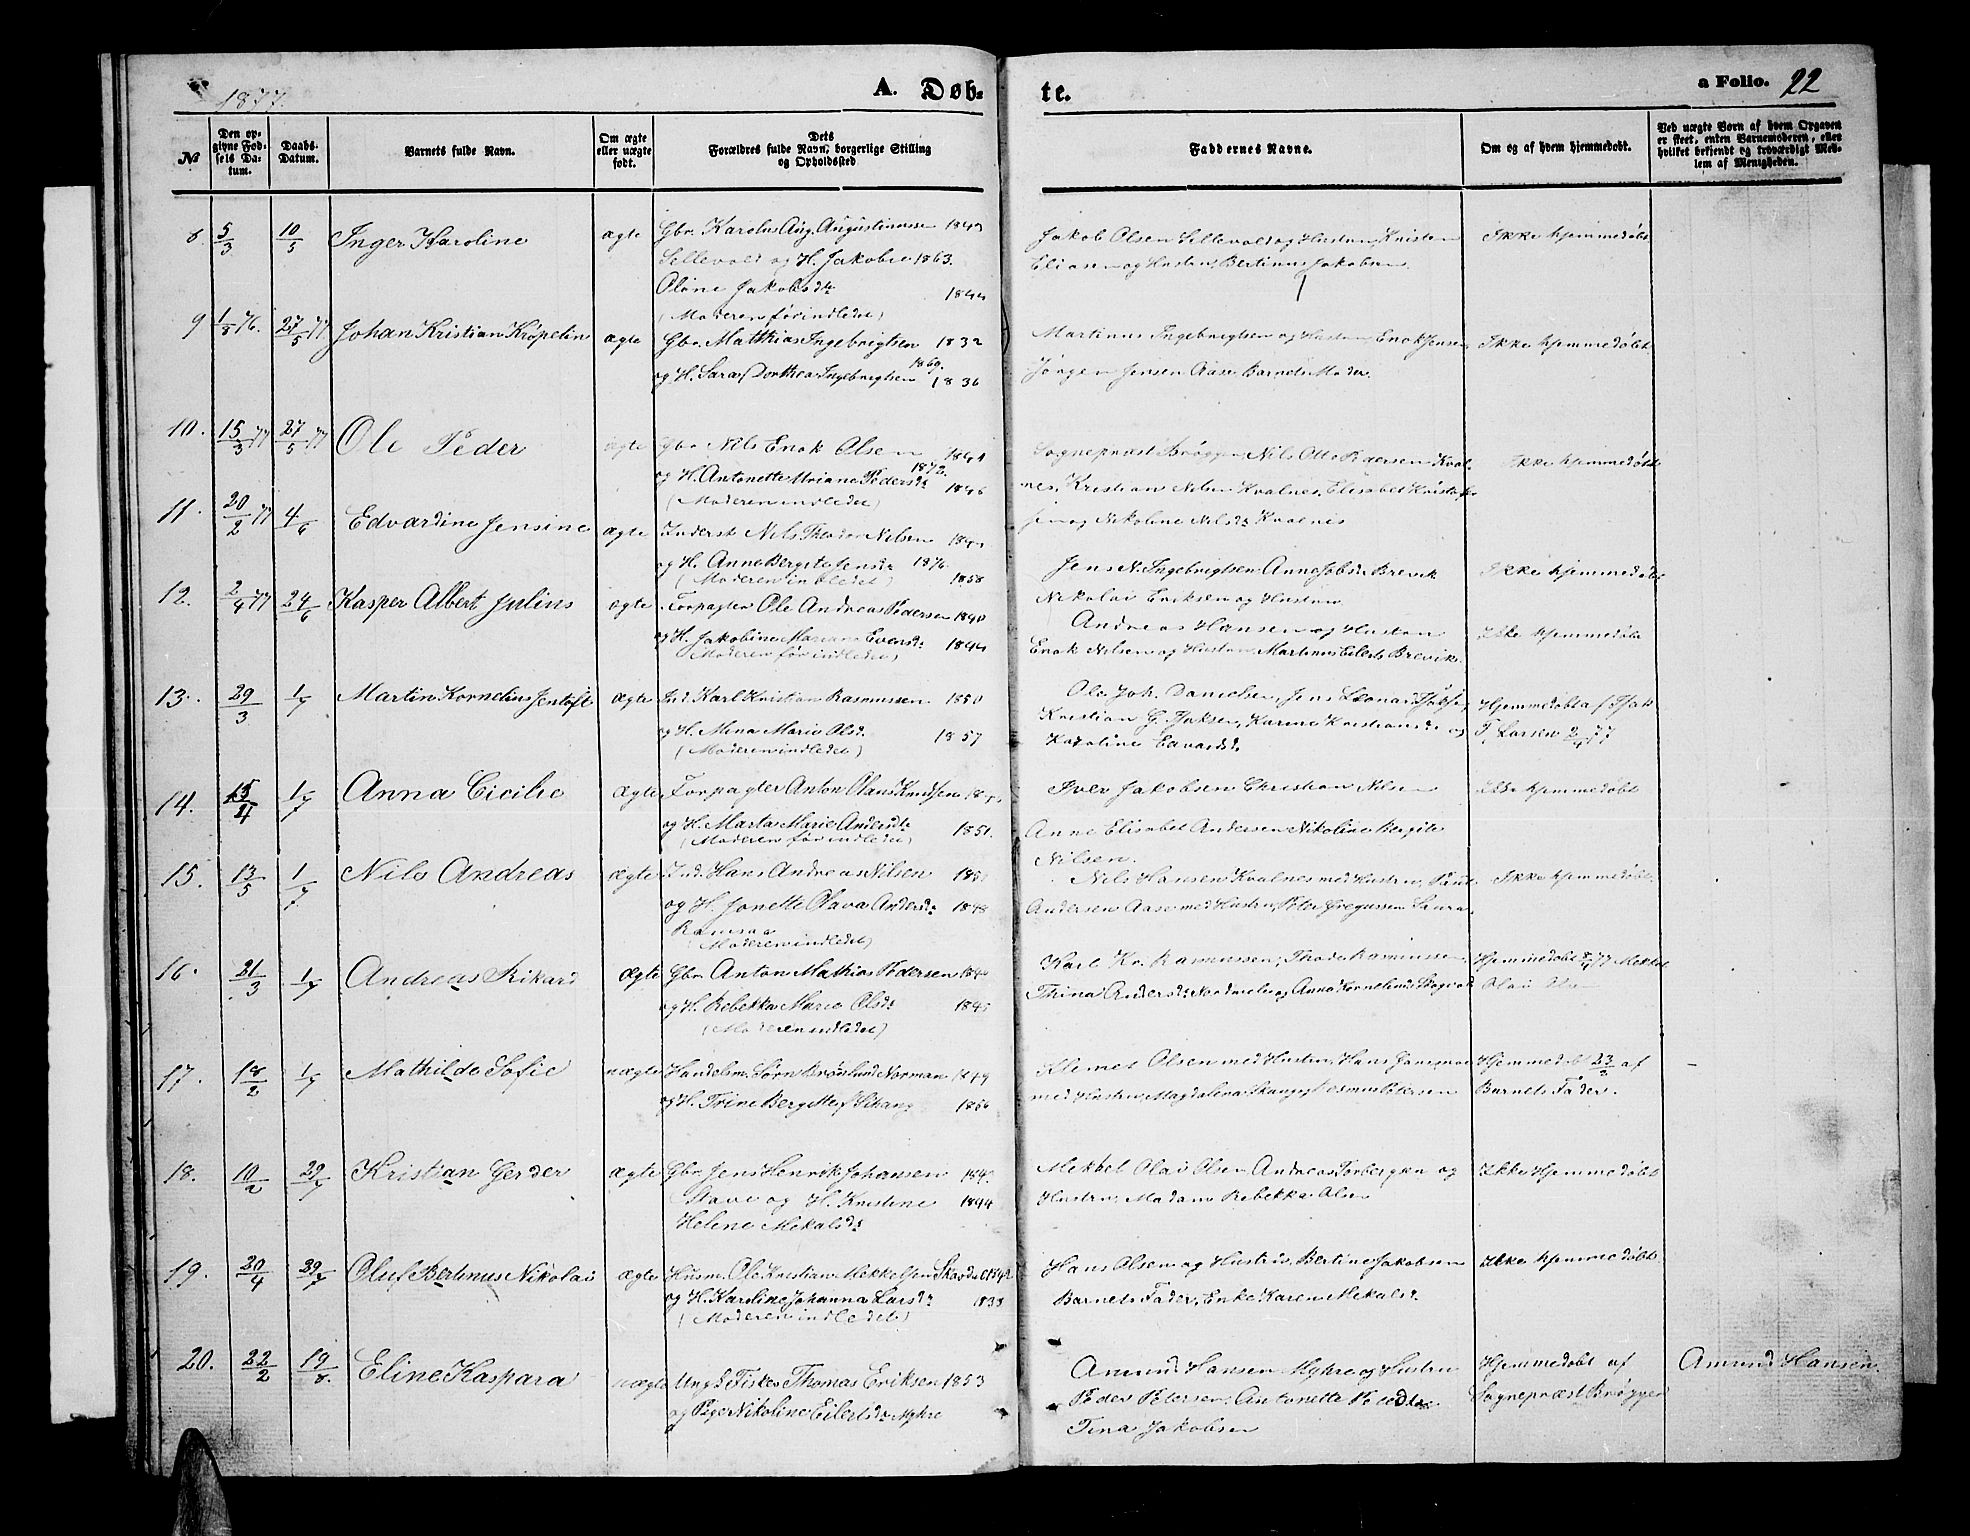 1877.
A. Døb-
te.
a Folio. 22
№
Den op-
givne Fød-
sels Da-
tum.
Daabs-
Datum.
Barnets fulde Navn.
Om ægte
eller uægte
født.
Dets
Forældres fulde Navn, borgerlige Stilling
og Opholdssted
Faddernes Navne.
Om og af hvem hjemmedøbt.
Ved uægte Børn af hvem Opgaven
er skeet, enten Barnemoderen, eller
hvilket bekjendt og troværdigt Med-
lem af Menigheden.
8. 5/3 10/5 Inger Karoline ægte Gbr. Karolus Aug. Augustinussen 1849
Sellevold og H. Jakobine 1863.
Oline Jakobsdtr 1844
(Moderen før indledet)
Jakob Olsen Sellevold og Hustru, Kristen
Eliasen og Hustru, Bertinus Jakobsen.
Ikke hjemmedøbt
9 1/8 76. 27/5 77 Johan Kristian Krøpelin ægte Gbr. Matthias Ingebrigtsen 1832
og H. Sara Dorthea Ingebrigtsen 1869. 1836
Martinus Ingebrigtsen og Hustru Enok Jensen,
Jørgen Jensen Aase. Barnets Moder.
Ikke hjemmedøbt
10. 15/3 77 27/5 77 Ole Peder ægte Gbr Nils Enok Olsen 1844
og H. Antonette Mriane Pedersd: 1872. 1846
(Moderen indledet)
Sognepræst Brøgger, Nils Otto Pedersen Kval-
nes, Kristian Nilsen Kvalnes, Elisabet Kristof-
og Nikoline Nilsd: Kvalnes
Ikke hjemmedøbt
11. 20/2 77 4/6 Edvardine Jensine ægte Inderst Nils Theodor Nilsen
og H. Anne Bergite Jensd: 1876. 1858
(Moderen indledet)
Jens N. Ingebrigtsen Anne Jobsd: Brevik
Nikolai Eriksen og Hustru
Ikke hjemmedøbt
12. 2/4 77 24/6 Kasper Albert Julius ægte Forpagter Ole Andreas Pedersen 1840
og H. Jakobine Mariane Evensd: 1844
(Moderen før indledet)
Andreas Hansen og Hustru
Enok Nilsen og Hustru, Martinus Eilerts Brevik.
Ikke hjemmedøbt
13. 29/3 1/7 Martin Kornelius Jentoft ægte Ind. Karl Kristian Rasmussen 1850
og H. Mina Marie Olsd. 1857
(Moderen indledet)
Ole Joh. Danielsen, Jens Leonard
Kristian G. Isaksen, Karine Kristiansd: og
Karoline Edvardsd.
Hjemmedøbt af Isak
T. Larsen 2/4 77
14. 15/4 1/7 Anna Cicilie ægte Forpagter Anton Olaus Knudsen
og H. Marta Marie Andersdtr 1851.
(Moderen før indledet)
Iver Jakobsen Christian Nilsen
Anne Elisabet Andersen Nikoline Bergite
Nilsen.
Ikke hjemmedøbt
15. 13/5 1/7 Nils Andreas ægte Ind. Hans Andreas Nilsen 185
og H. Jonette Olava Andersd: 1848
Ramsaa
(Moderen indledet)
Nils Hansen Kvalnes med Hustru, Paul
Andersen Aase med Hustru, Peter Gregussen Saura
Ikke hjemmedøbt.
16. 21/3 1/7 Andreas Rikard ægte Gbr. Anton Mathias Pedersen
og H. Rebekka Marie Olsd: 1845
(Moderen indledet)
Karl Kr. Rasmussen, Thode Rasmussen
Thina Andersd: og Anna Kornelius Skogvold
Hjemmedøbt 8/4 77 Mekkel
Olai Olsen
17. 18/2 1/7 Mathilde Sofie uægte Handelsm. Sørn Brøslund Norman 1849
og H. Trine Berg 1856
Klemet Olsen med Hustru, Hans
med Hustru, Magdalena Skange, Rasmus Petersen
Hjemmedøbt 23/2 af
Barnets Fader.
18. 10/2 29/7 Kristian Gerder ægte Gbr. Jens Henrik Johansen 184
Stave og H. Kristine 1844
Helene Mekalsd:
Mekkel Olai Olsen Andreas Torbergsen og
Hustru, Madam Rebekka Olsen
Ikke Hjemmedøbt
19. 20/4 29/7 Oluf Bertinus Nikolai ægte Husm. Ole Kristian Mekkelsen Skovdal 1842
og H. Karoline Johanna Larsd: 1838
(Moderen indledet)
Hans Olsen og Hustru, Bertine Jakobsen
Barnets Fader, Enke Karen Mekalsd.
Ikke hjemmedøbt
20. 22/2 19/8. Eline Kaspara uægte Ungk. Fisker Thomas Eriksen 1853
og Pige Nikoline Eilertsd: Myhre
Amund Hansen Myhre og Hustru
Peder Petersen. Antonette
Tina Jakobsen
Hjemmedøbt af
Sognepræst Brøgger
Amund Hansen